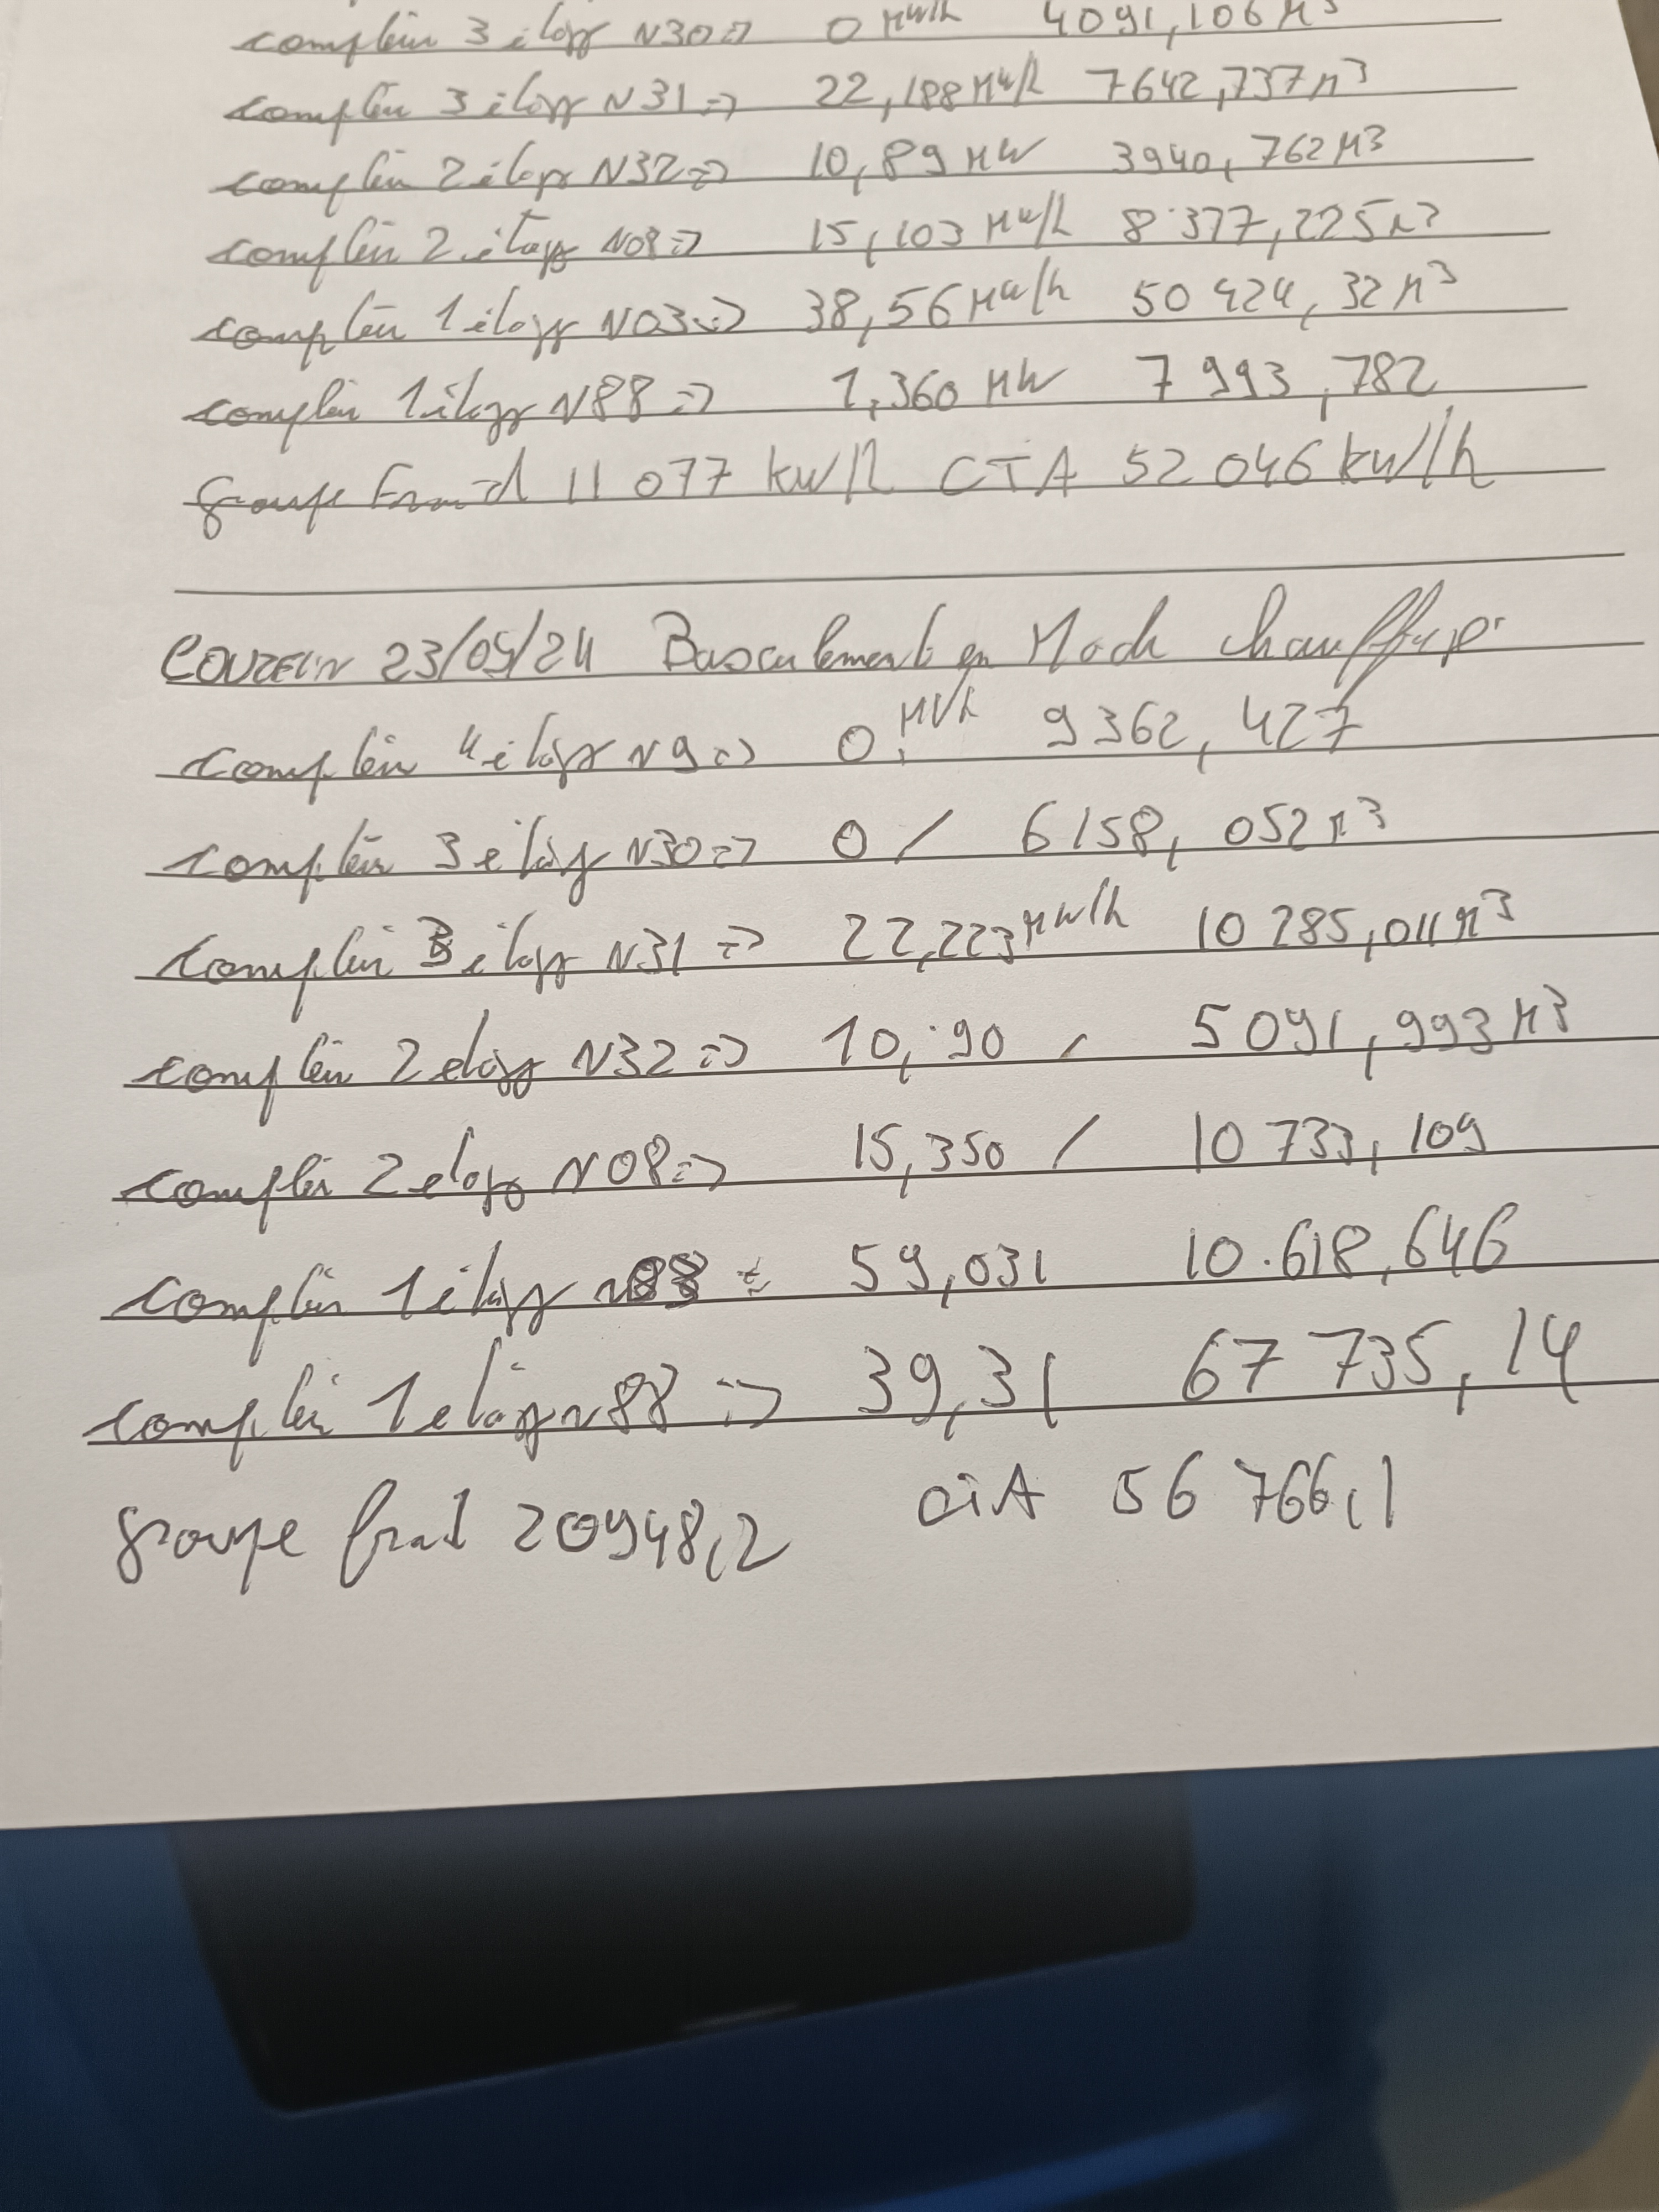 compteur 3 étage N30 => 0 MW/h 4091,106 M3
compteur 3 étage N31 => 22,188 MW/h 7642,737 M3
compteur 2 étage N32 => 10,89 MW 3940,762 M3
compteur 2 étage N08 => 15,103 MW/h 8377,225 M3
compteur 1 étage N03 => 38,56 MW/h 50 424,32 M3
compteur 1 étage N88 => 1,360 MW 7 993,782
groupe Froid 11 077 kW/h CTA 52 046 kW/h
23/05/24 Basculement en Mode chauffage
compteur 4 étage N9 => 0, MW/h 9362,427
compteur 3 étage N30 => 0 / 6158,052 M3
compteur 3 étage N31 => 22,223 MW/h 10 285,011 M3
compteur 2 étage N32 => 10,90 / 5 091,993 M3
compteur 2 étage N08 => 15,350 / 10 733,109
compteur 1 étage 59,031 10.618,646
compteur 1 étage N88 => 39,31 67 735,14
groupe froid 20948,2 CTA 56 766,1